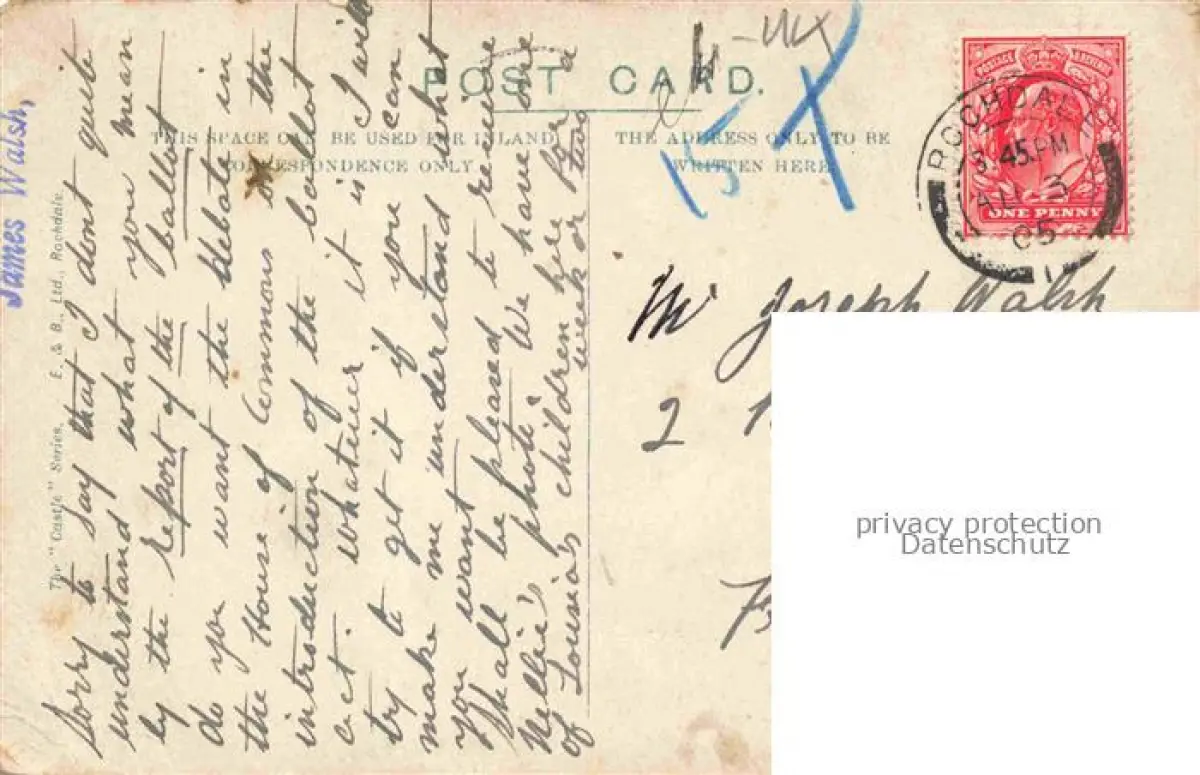 POST CARD.
THIS SPACE CAN BE USED FOR INLAND
CORRESPONDENCE ONLY
THE ADDRESS ONLY TO BE
WRITTEN HERE
James Walsh,
The "Castle" Series, E. & B., Ltd., Rochdale.
Sorry to say that I dont quite
understand what you mean
by the report of the ballot
do you want the debate in
the House of Commons on the
introduction of the ballot
act. whatever it is I will
try to get it if you can
make me understand what
you want
Shall be pleased to receive
Nellie's photo. We have one
of Lousia's children here for a
week or two
POSTAGE REVENUE
ONE PENNY
ROCHDALE
3.45 PM
AU 3
05
Mr Joseph Walsh
2
15
privacy protection
Datenschutz